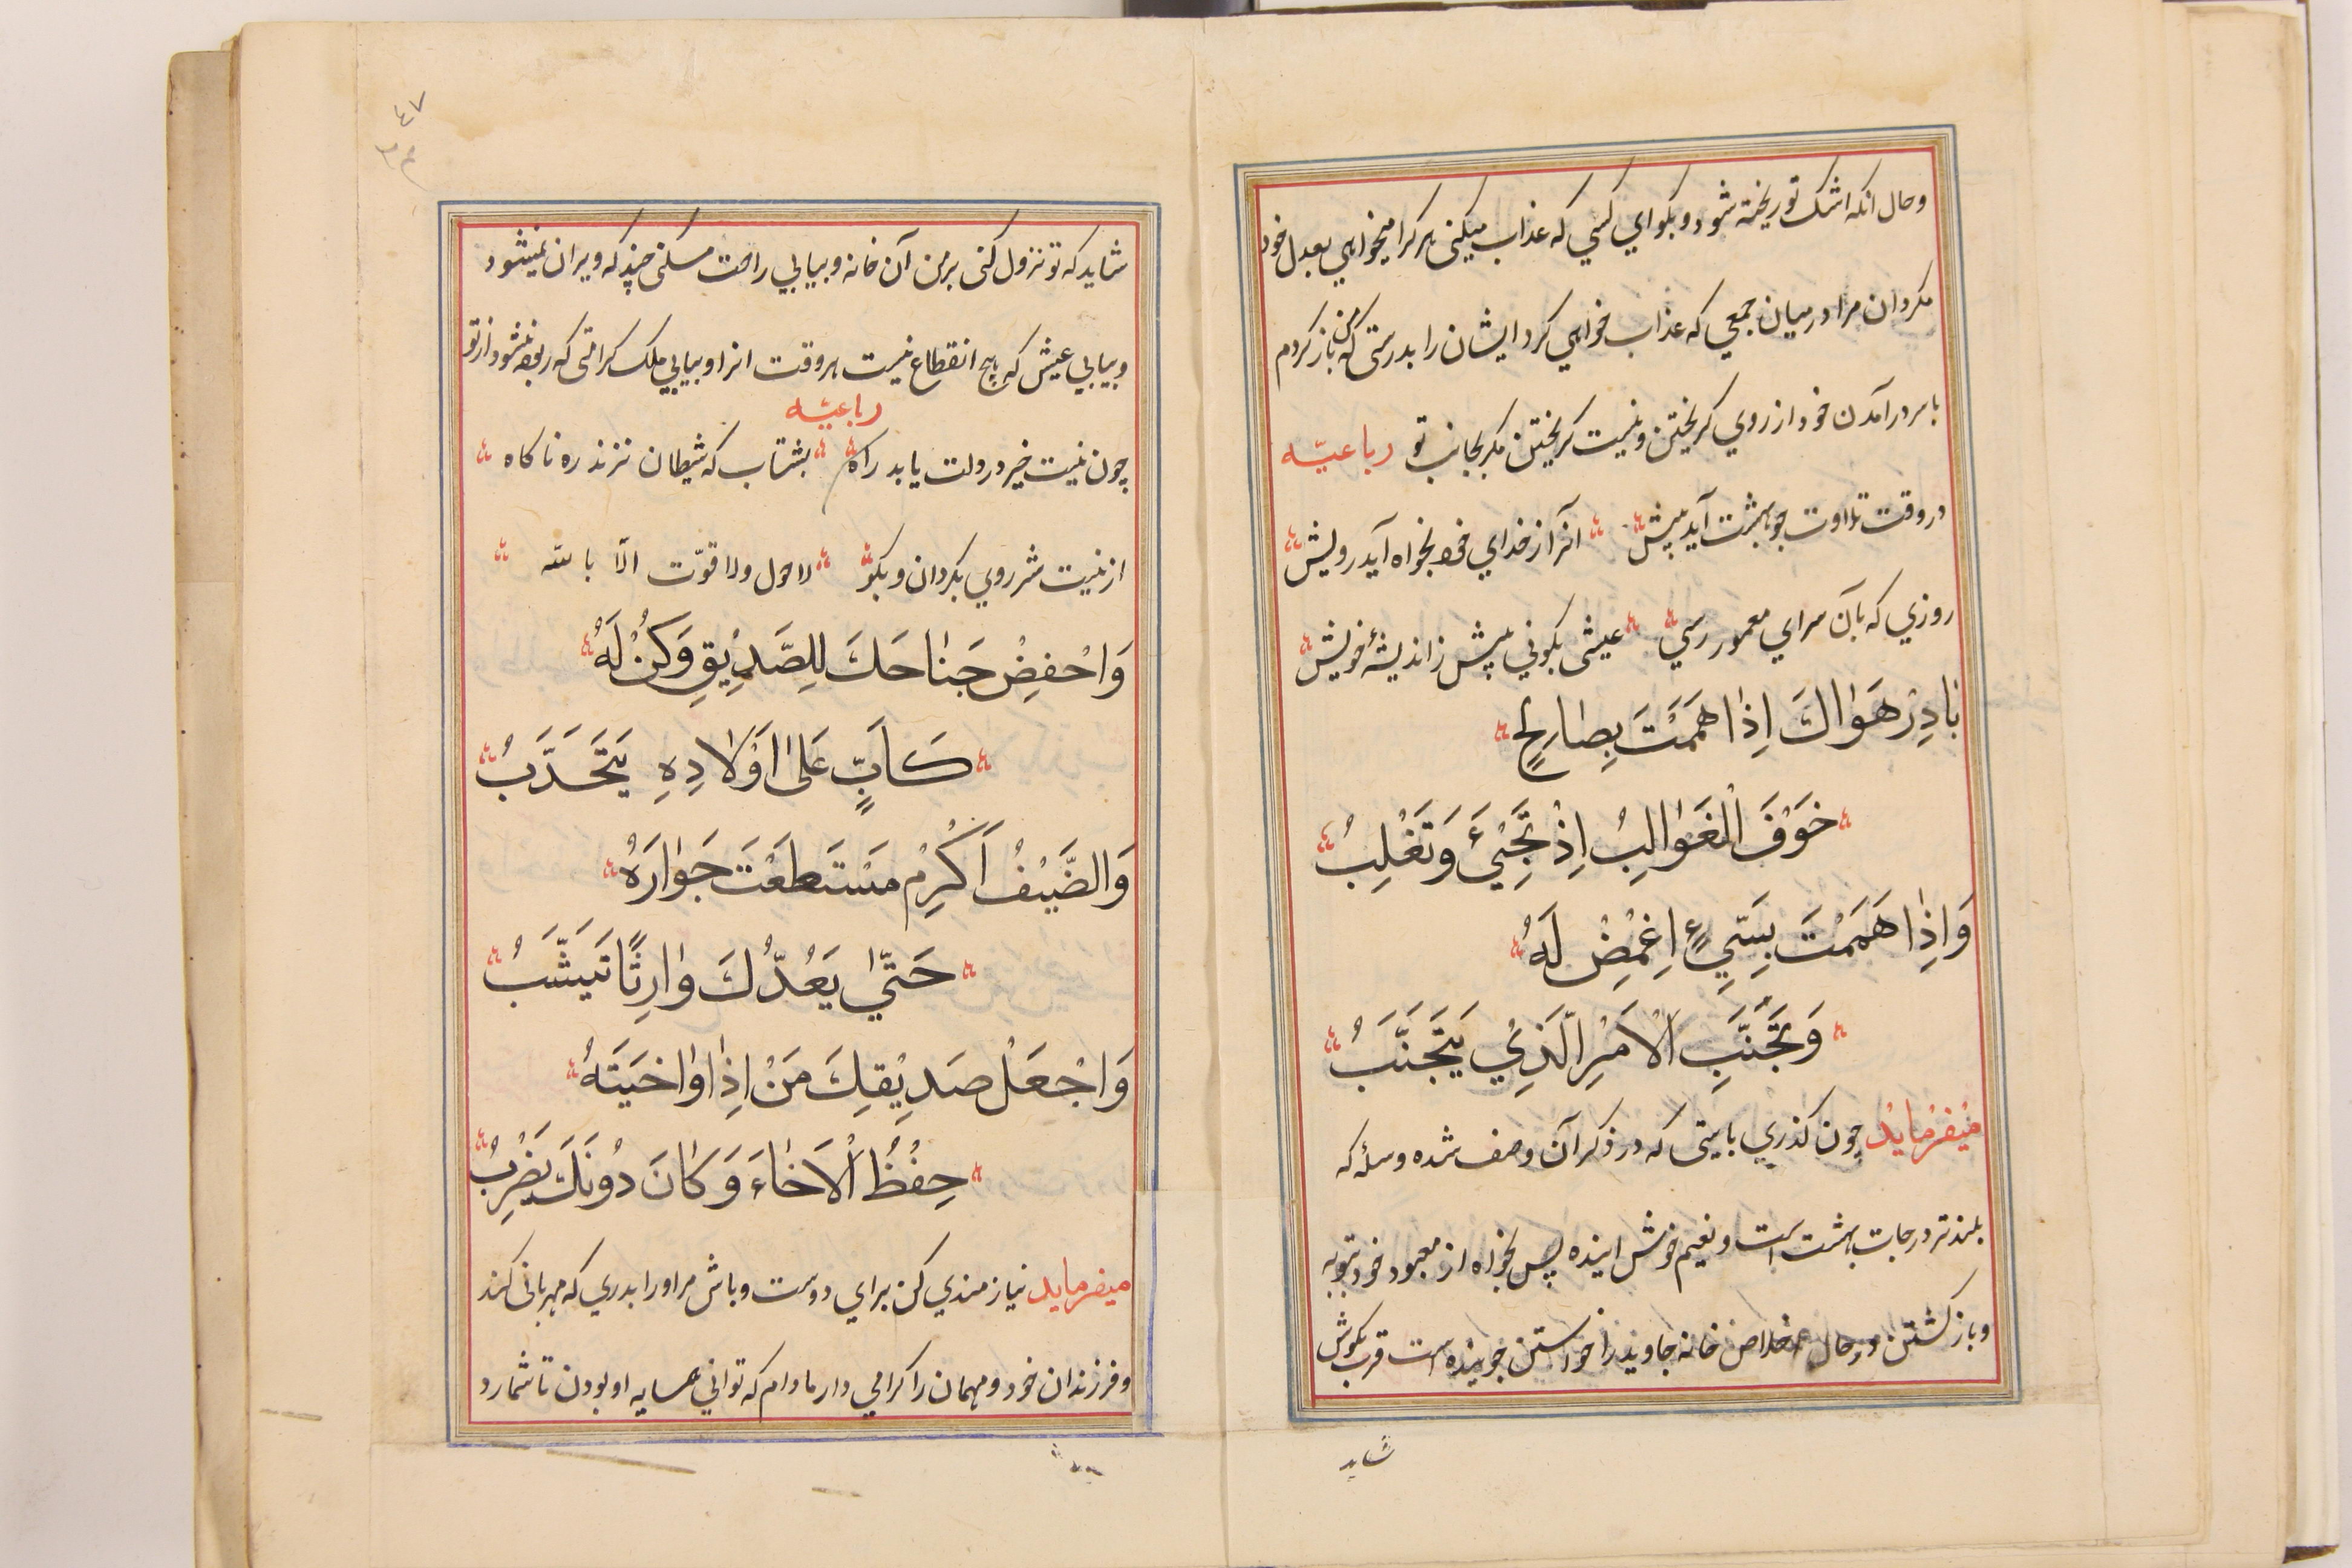 وحال انکه اشک تو ریخته شود و بکو ای کسی که عذاب میکنی هر کرا میخواهی بعدل خود
مکردان مرا در میان جمعی که عذاب خواهی کرد ایشان را بدرستی که من باز کردم
با سر در آمدن خود از روی کریختن و نیست کریختن مکر بجانب تو رباعیّه
در وقت تلاوت چو بهشت آید پیش آنرا از خدای خود بخواه ای درویش
روزی که بآن سرای معمور رسی عیشی بکونی پیش ز اندیشهٔ خویش
بٰادِرْ هَوٰاكَ اِذٰا هَمَمْتَ بِصٰالِحٍ
خَوْفَ الْغَوٰالِبُ اِذْ تَجِيْءَ وَتَغْلِبُ
وَاِذٰا هَمَمْتَ بِسَيِّءٍ اِغْمِضْ لَهُ
وَتَجَنَّبِ الْاَمْرِ الَّذِيْ يَتَجَنَّبُ
میفرماید چون کذری بآیتی که در ذکر آن وصف شده وسله که
بلندتر درجات بهشت است و نعیم خوش اینده پس بخواه از معبود خود بتوبه
و باز کشتن در حال اخلاص خانه جاوید را خواستن جوینده است قرب بکوش
شاید
٤٧
شاید که تو نزول کنی بر من آن خانه و بیابی راحت مسکنی چند که ویران نمیشود
و بیابی عیش که هیچ انقطاع نیست هر وقت انرا و بیابی ملک کرامتی که ربوده نشود از تو
رباعیّه
چون نیت خیر در دلت یابد راه بشتاب که شیطان نزند ره ناکاه
از نیت شر روی بکردان و بکو لا حول ولا قوّت الّا بالله
وَاحْفِضْ جَنٰاحَكَ لِلصَّدِيْقِ وَكُنْ لَهُ
كَاَبٍّ عَلىٰ اَوْلٰادِهِ يَتَحَدَّبُ
وَالضَّيْفُ اَكْرِمْ مَسْتَطَعْتَ جَوٰارَهُ
حَتّىٰ يَعُدُّكَ وٰارِثًا تَيَنَسَّبُ
وَاجْعَلْ صَدِيْقِكَ مَنْ اِذٰا وٰاخَيَتَهُ
حِفْظُ الْاَخٰاءَ وَكٰانَ دُوْنَكَ يَضْرِبُ
میفرماید نیازمندی کن برای دوست و باش مر او را بدری که مهربانی کند
و فرزندان خود و مهمان را کرامی دار مادام که توانی همسایه او بودن تا شمارد